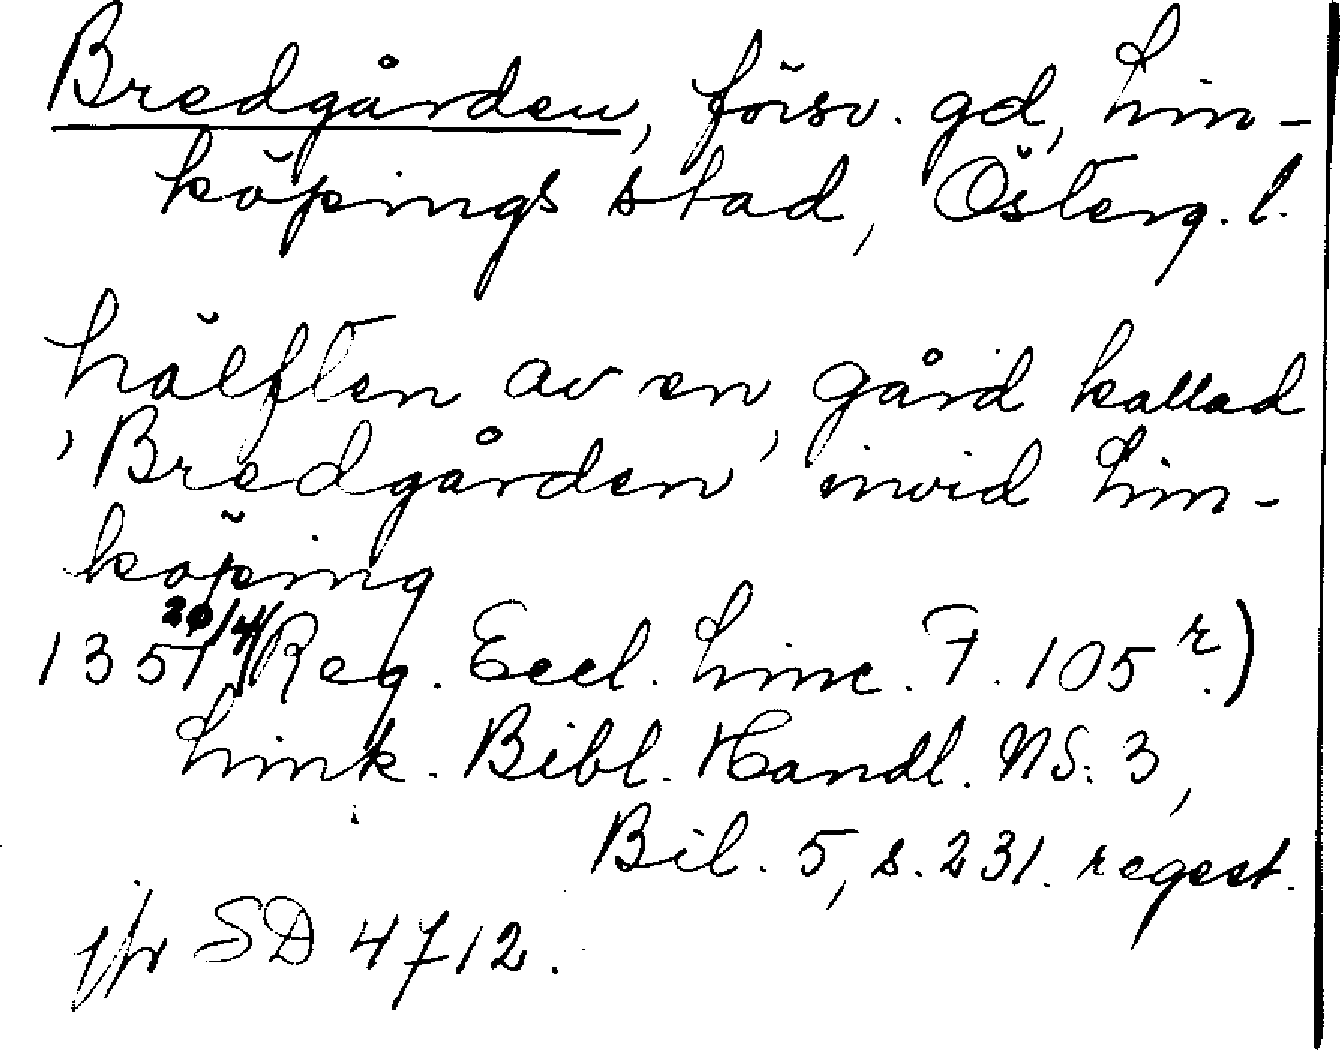 Bredgården, försv. gd, Lin-
köpings stad, Österg. l.
hälften av en gård kallad
'Bredgården' invid Lin-
köping
1351 20/4 (Reg. Eccl. Linc. F. 105 r.)
Link. Bibl. Handl. NS. 3,
Bil. 5, s. 231. regest.
jfr SD 4712.